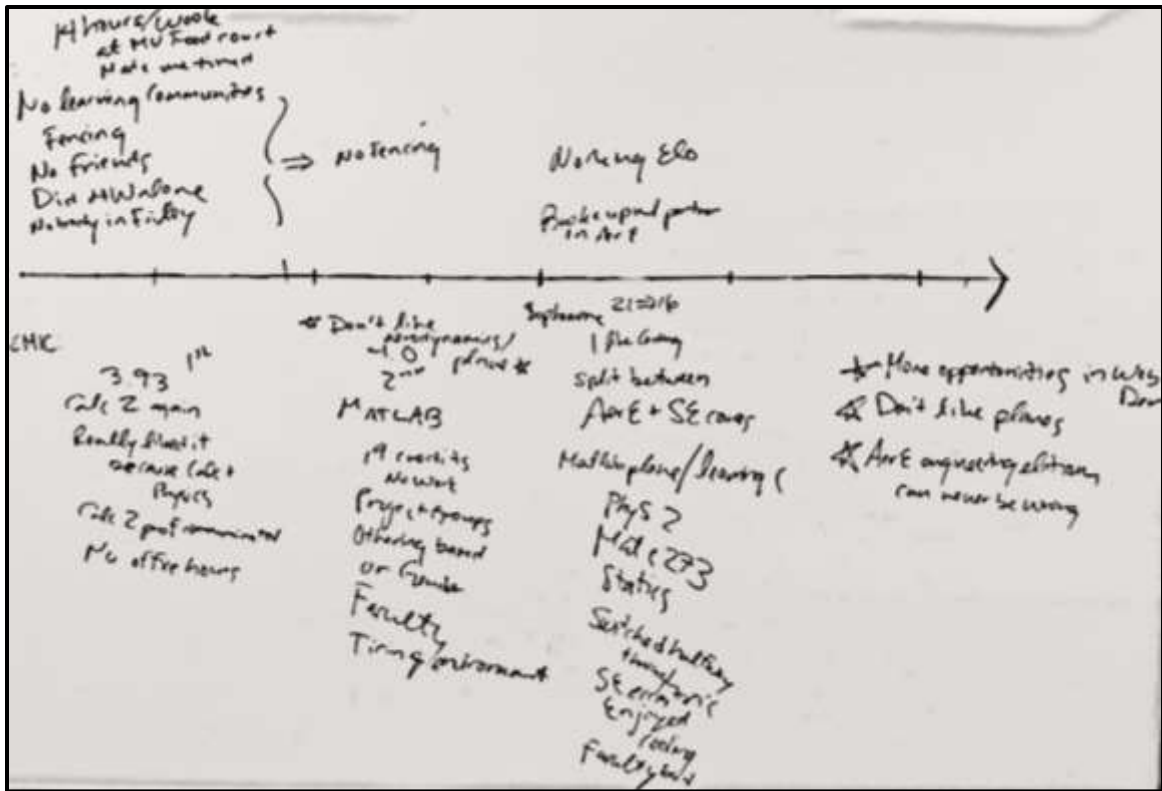 14 hours/week
at MU Food court
Made me tired
No learning Communities
Fencing
No Friends
Did HW alone
Nobody in Friley
⇒ No Fencing
Working
in AerE
1st
3.93
Calc 2 again
Really liked it
because Calc +
Physics
Calc 2 prof
No office hours
* Don't like
aerodynamics/
planes *
2nd
MATLAB
19 credits
No work
Project groups
Othering based
on Gender
Faculty
Tiring environment
September
split between
AerE + SE
learning C
Phys 2
Mat E 273
Statics
Switched halfway
SE
Enjoyed
Coding
Faculty
* More opportunities in Web
* Don't like planes
* AerE engineering elitism
can never be wrong